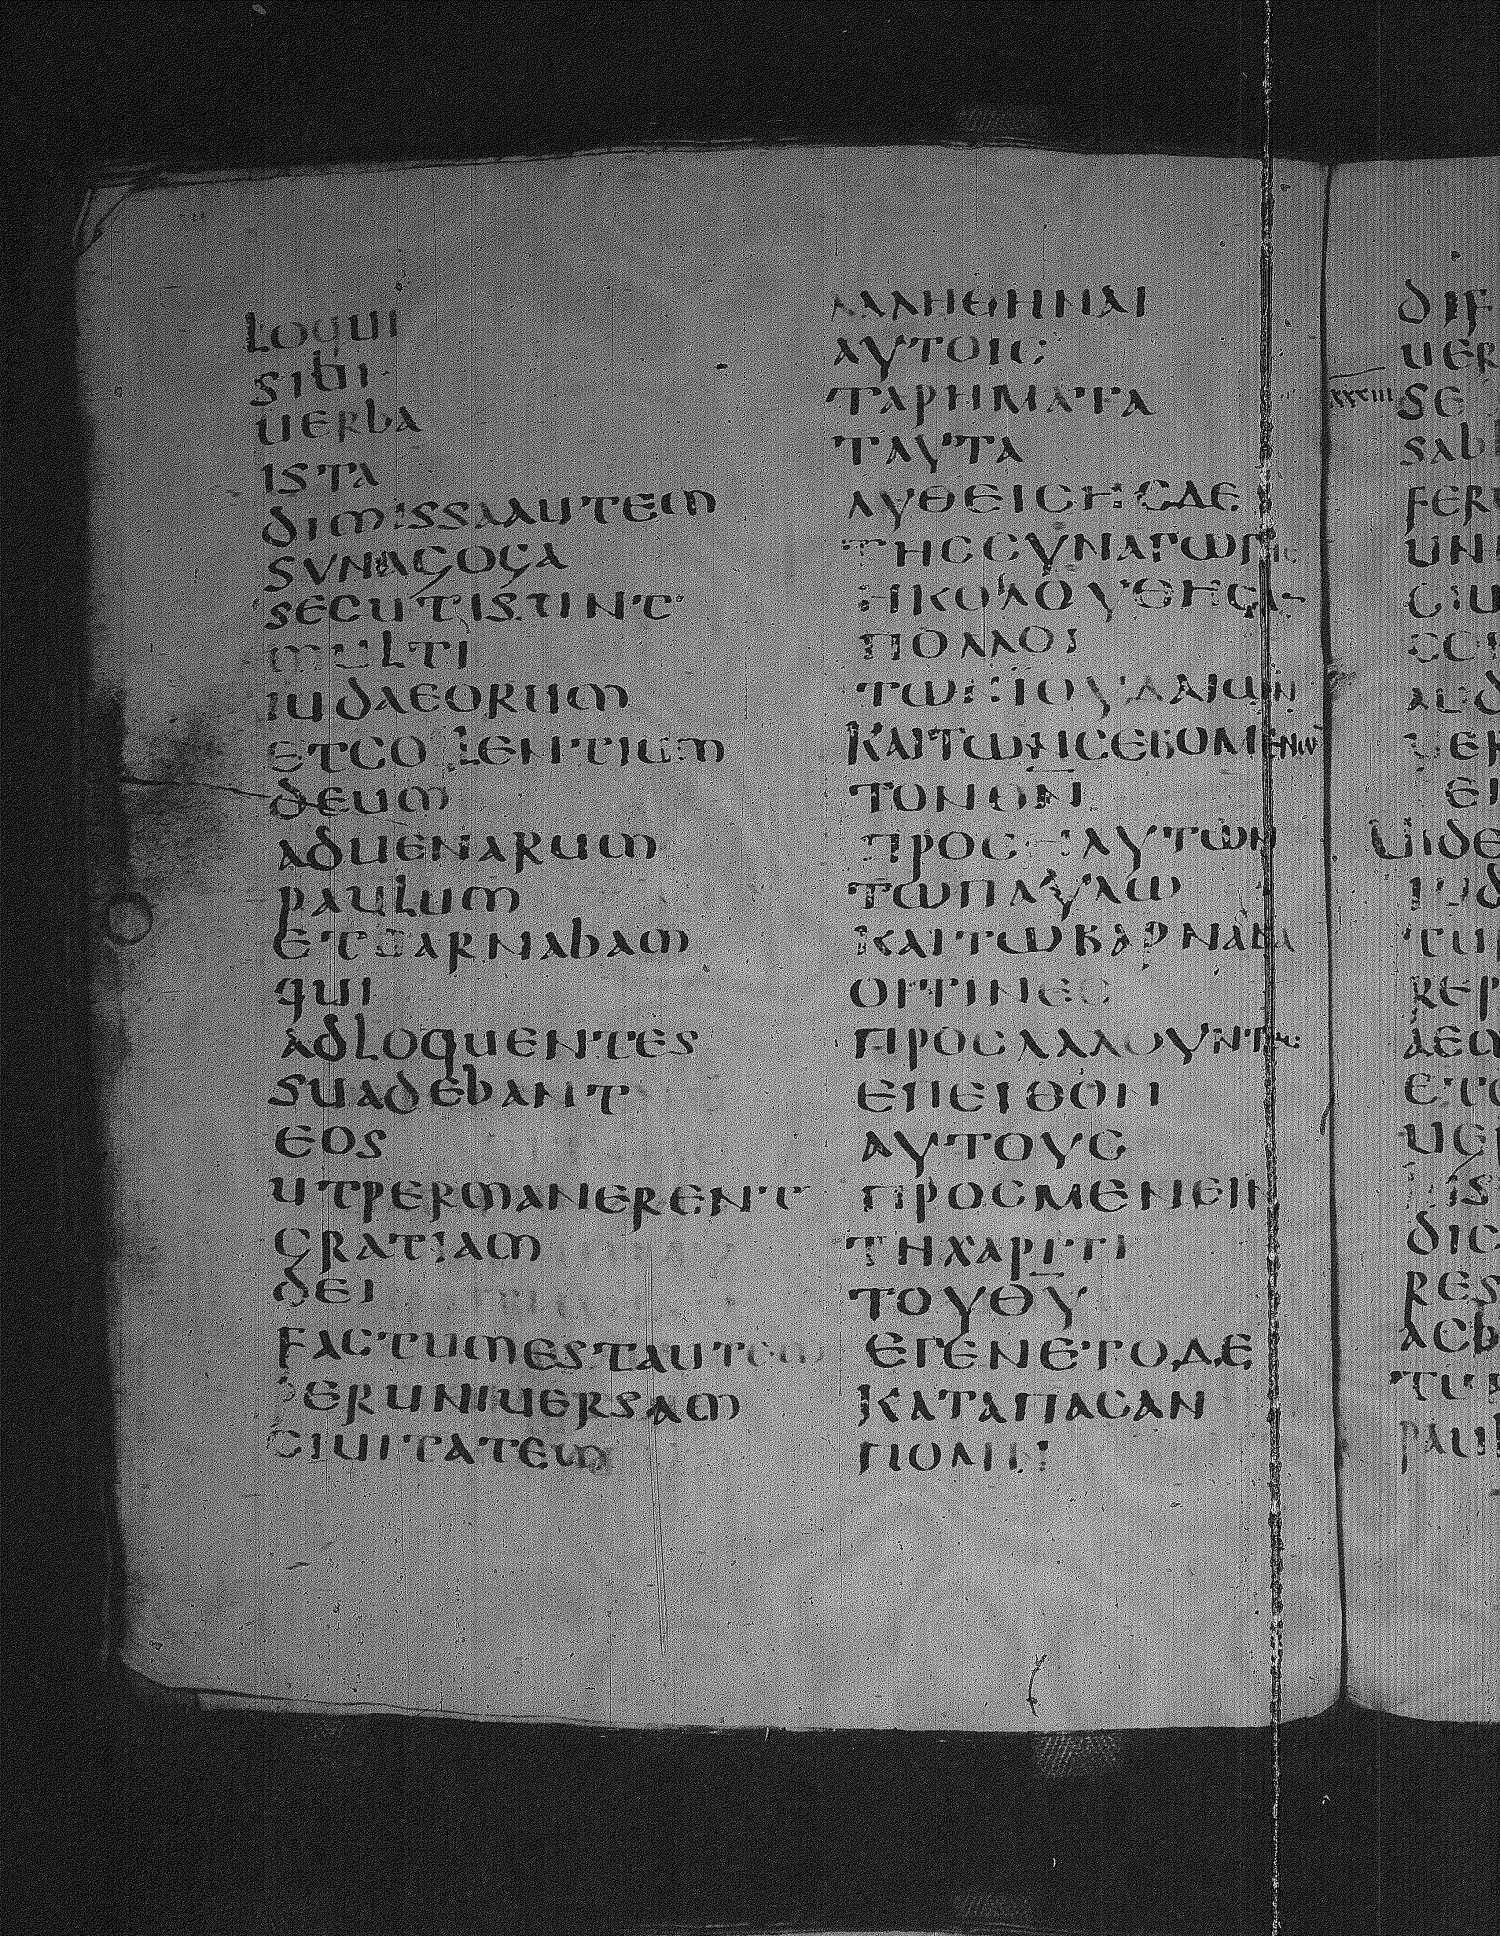 LOQUI
SIBI
UERBA
ISTA
DIMISSAAUTEM
SYNAGOGA
SECUTISUNT
MULTI
IUDAEORUM
ETCOLENTIUM
DEUM
ADUENARUM
PAULUM
ETBARNABAM
QUI
ADLOQUENTES
SUADEBANT
EOS
UTPERMANERENT
GRATIAM
DEI
FACTUMESTAUTEM
PERUNIUERSAM
CIUITATEM
ΛΑΛΗΘΗΝΑΙ
ΑΥΤΟΙϹ
ΤΑΡΗΜΑΤΑ
ΤΑΥΤΑ
ΛΥΘΕΙϹΗϹΔΕ
ΤΗϹϹΥΝΑΓΩΓΗϹ
ΗΚΟΛΟΥΘΗϹΑ
ΠΟΛΛΟΙ
ΤΩΝΪΟΥΔΑΙΩΝ
ΚΑΙΤΩΝϹΕΒΟΜΕΝΩ
ΤΟΝΘΝ
ΠΡΟϹΗΛΥΤΩΝ
ΤΩΠΑΥΛΩ
ΚΑΙΤΩΒΑΡΝΑΒΑ
ΟΙΤΙΝΕϹ
ΠΡΟϹΛΑΛΟΥΝΤΕϹ
ΕΠΕΙΘΟΝ
ΑΥΤΟΥϹ
ΠΡΟϹΜΕΝΕΙΝ
ΤΗΧΑΡΙΤΙ
ΤΟΥΘΥ
ΕΓΕΝΕΤΟΔΕ
ΚΑΤΑΠΑϹΑΝ
ΠΟΛΙΝ
DIF
UER
XXXIII SE
SAB
FER
UN
CIU
CO
AUD
UER
UIDE
IUD
TU
REP
AEM
ETC
UER
DIC
RES
ACB
TUR
PAUL